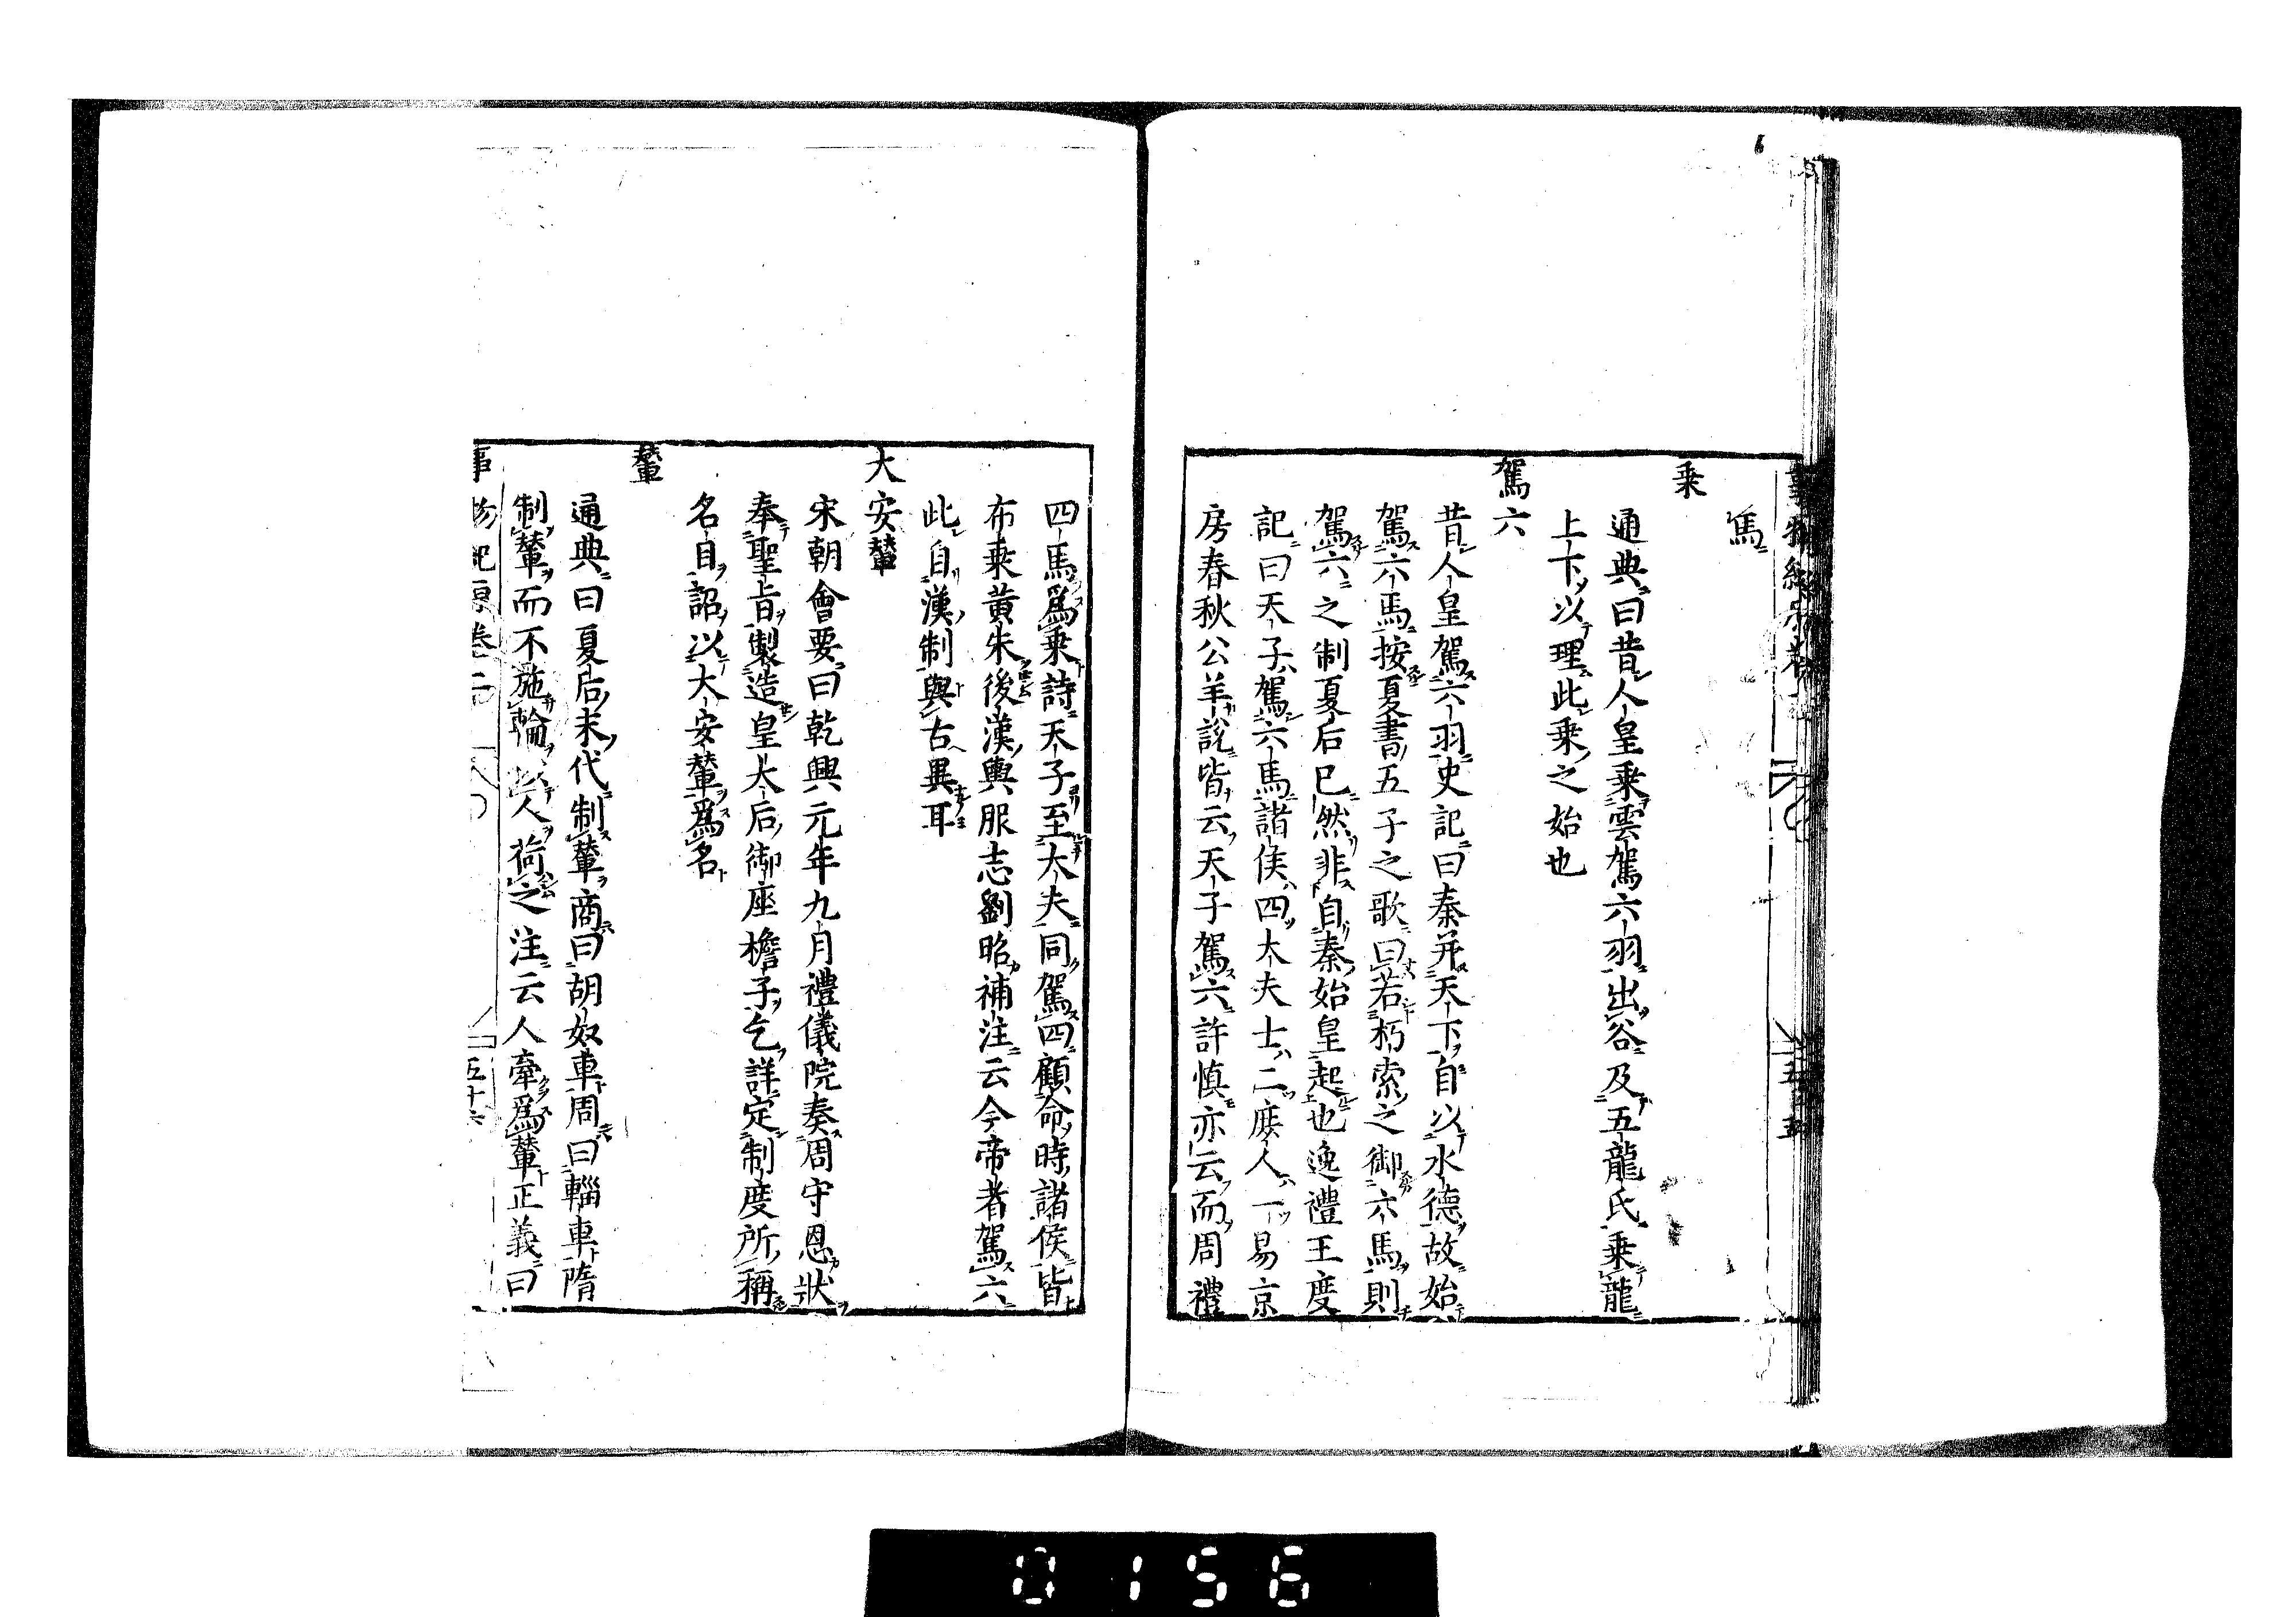 焉
乗
通典曰昔人皇乗雲駕六羽出谷及五龍氏乗龍
上下以理此乗之始也
駕六
昔人皇駕六羽史記曰秦并天下自以水德故始
駕六馬按夏書五子之歌曰若朽索之御六馬則
駕六之制夏后已然非自秦始皇起也逸禮王度
記曰天子駕六馬諸侯四大夫士二庶人一易京
房春秋公羊說皆云天子駕六許慎亦云而周禮
四馬爲乗詩天子至大夫同駕四顧命時諸侯皆
布乗黄朱後漢輿服志劉昭補注云今帝者駕六
此自漢制與古異耳
大安輦
宋朝會要曰乾興元年九月禮儀院奏周守恩狀
奉聖旨製造皇太后御座檐子乞詳定制度所稱
名目詔以大安輦爲名
輦
通典曰夏后末代制輦商曰胡奴車周曰輜車隋
制輦而不施輪以人荷之注云人牽爲輦正義曰
事物紀原卷二
五十六
0156